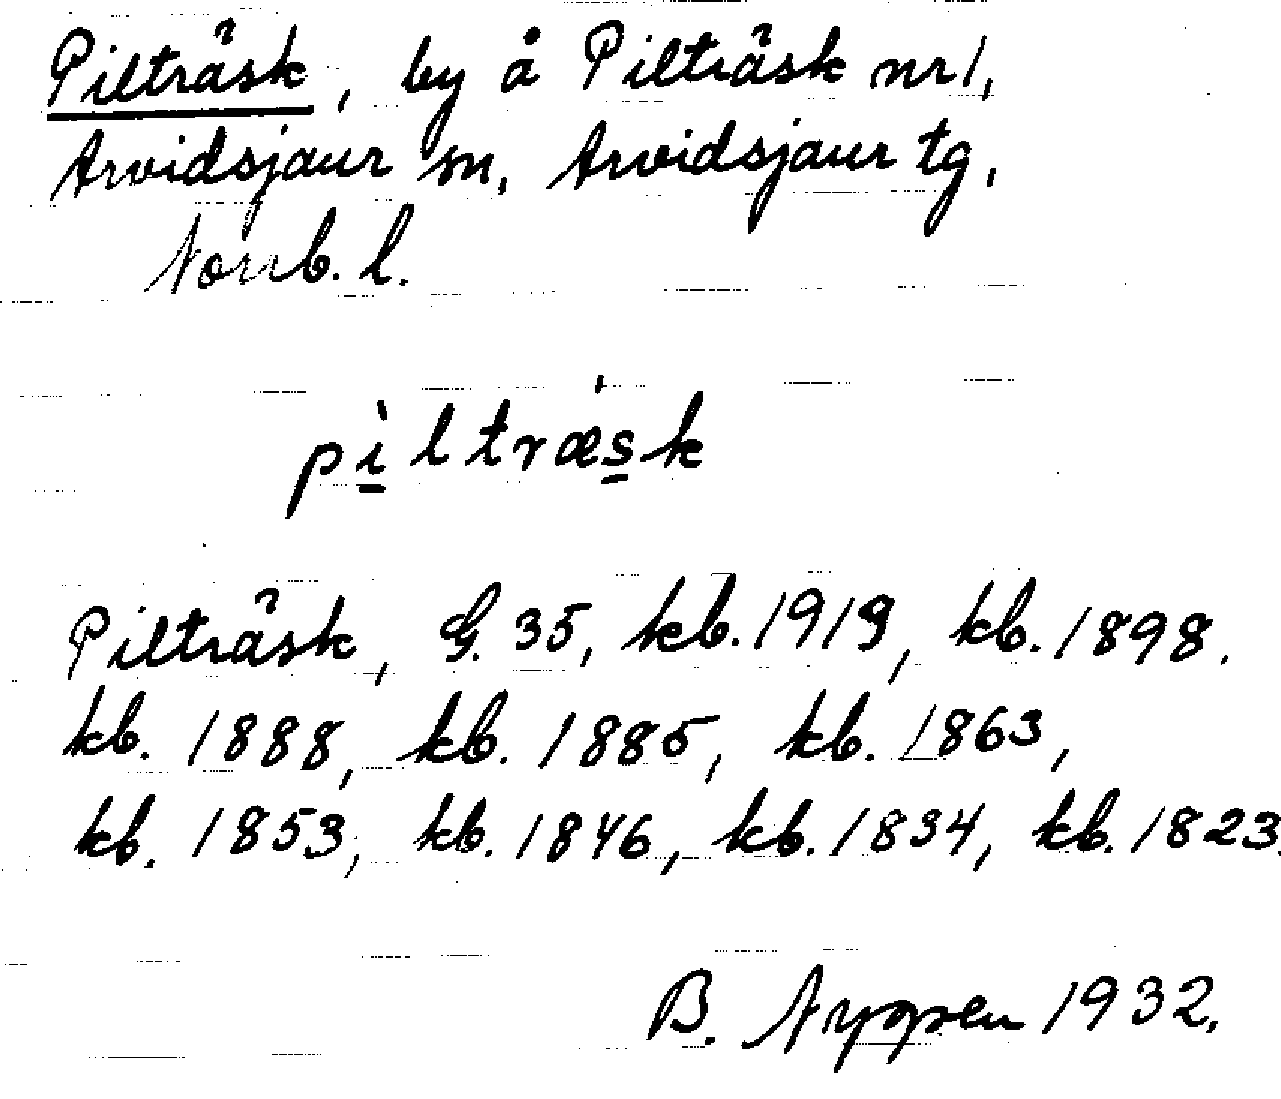 Pilträsk, by å Pilträsk nr 1,
Arvidsjaur sn, Arvidsjaur tg,
Norrb. l.
pìltræsk
Pilträsk, G. 35, kb. 1919, kb. 1898.
kb. 1888, kb. 1885, kb. 1863,
kb. 1853, kb. 1846, kb. 1834, kb. 1823.
B. 1932.